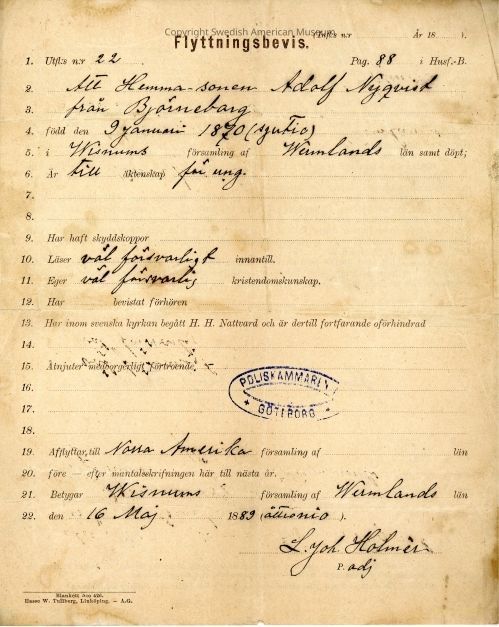 Copyright Swedish American Museum
Utfl:s n:r År 18 ).
Flyttningsbevis.
1. Utfl:s n:r 22 Pag. 88 i Husf.-B.
2. Att Hemma-sonen Adolf Nyqvist
3. från Björneborg
4. född den 9 Januari 1870 (sjutio)
5. i Wisnums församling af Wermlands län samt döpt;
6. Är till äktenskap för ung.
7.
8.
9. Har haft skyddskoppor
10. Läser väl försvarligt innantill.
11. Eger väl försvarlig kristendomskunskap.
12. Har bevistat förhören
13. Har inom svenska kyrkan begått H. H. Nattvard och är dertill fortfarande oförhindrad
14.
15. Åtnjuter medborgerligt förtroende,
16.
POLISKAMMAREN
17.
GÖTEBORG
18.
19. Afflyttar, till Norra Amerika församling af län
20. före — efter mantalsskrifningen här till nästa år.
21. Betygar Wisnums församling af Wermlands län
22. den 16 Maj 1889 (åttionio ).
L. Joh Holmèr
P. adj
Blankett N:o 426.
Hasse W. Tullberg, Linköping. — A.G.